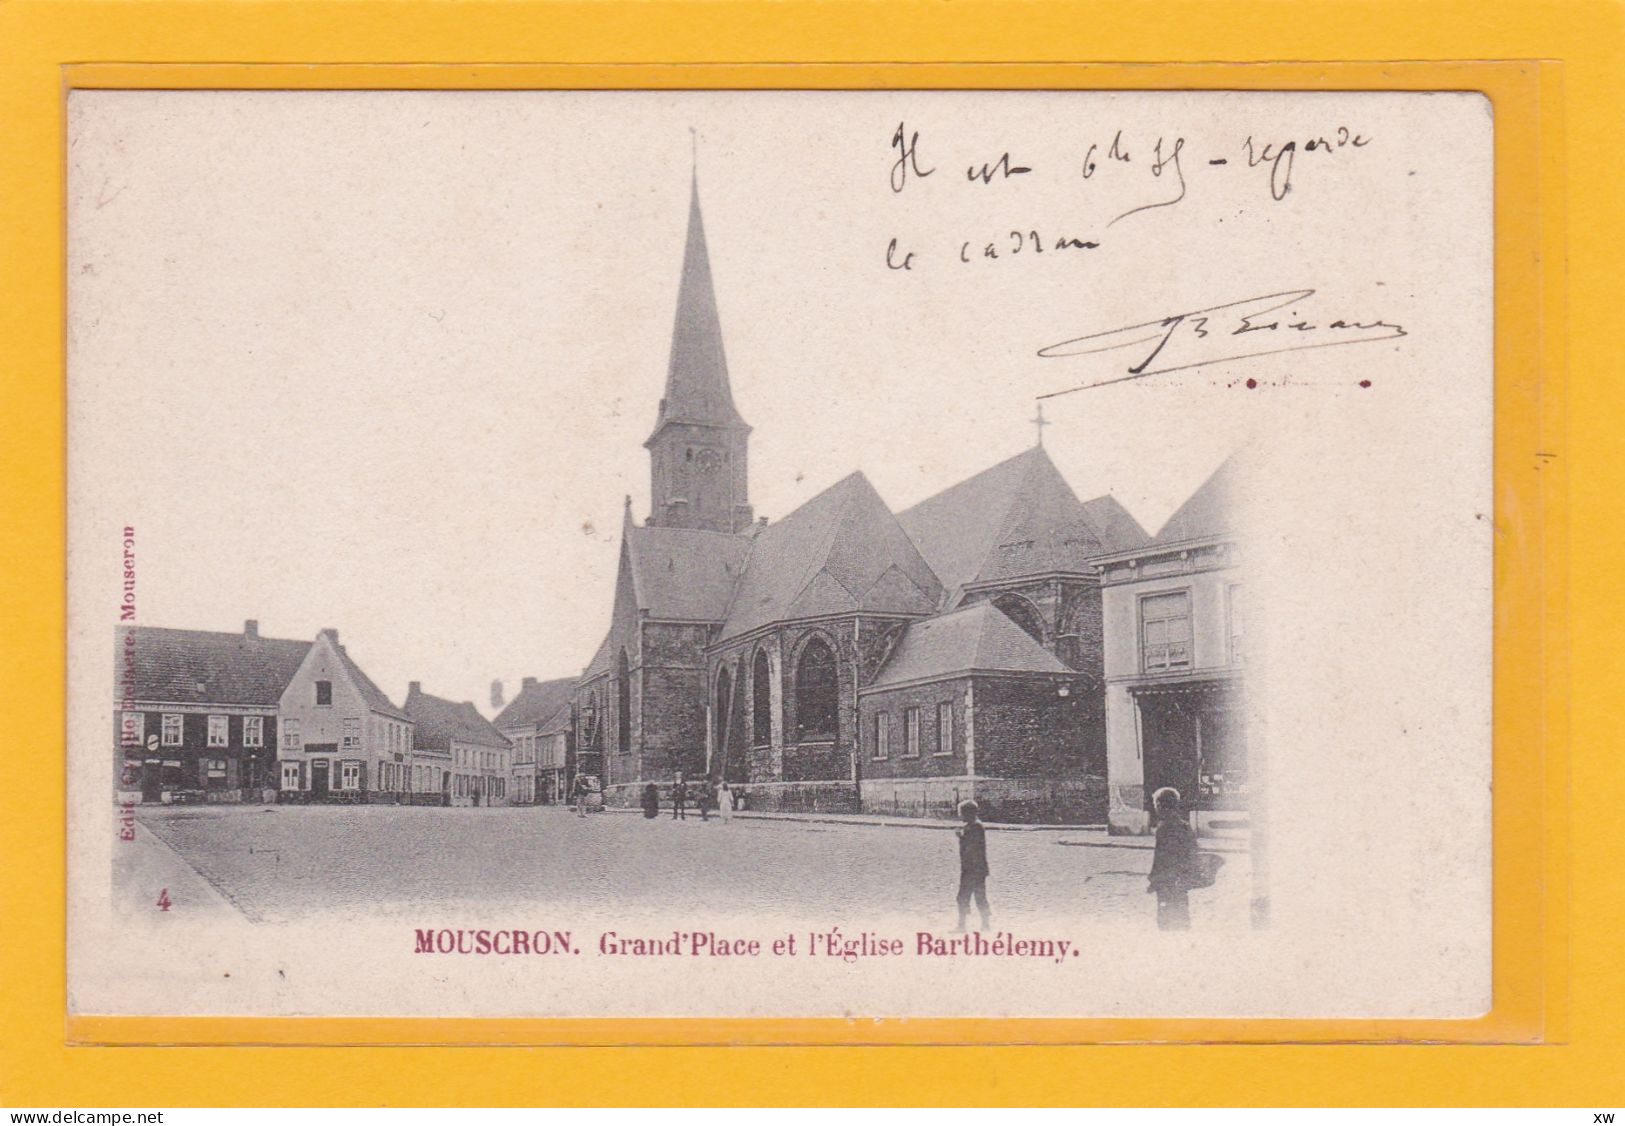 Il est 6h 35 - regarde
le cadran
Edit. Cyrille Delaere, Mouscron
4
MOUSCRON. Grand'Place et l'Église Barthélemy.
www.delcampe.net
xw